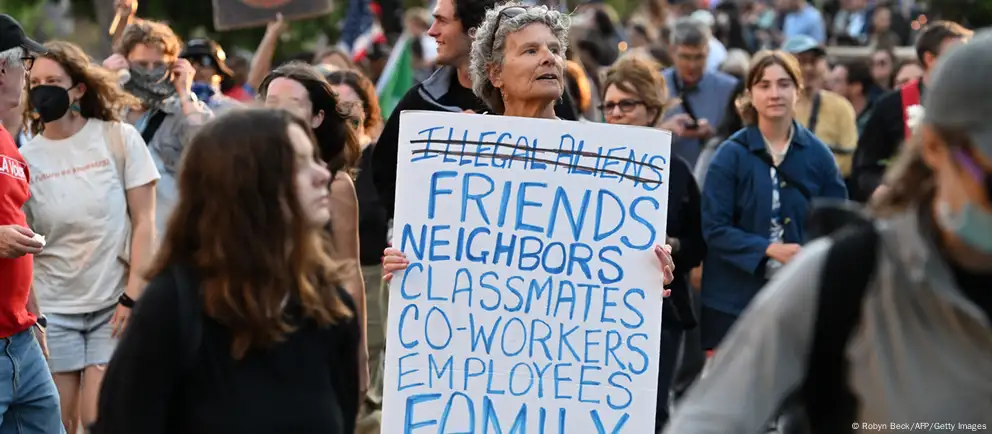 ILLEGAL ALIENS
FRIENDS
NEIGHBORS
CLASSMATES
CO-WORKERS
EMPLOYEES
FAMILY
© Robyn Beck/AFP/Getty Images